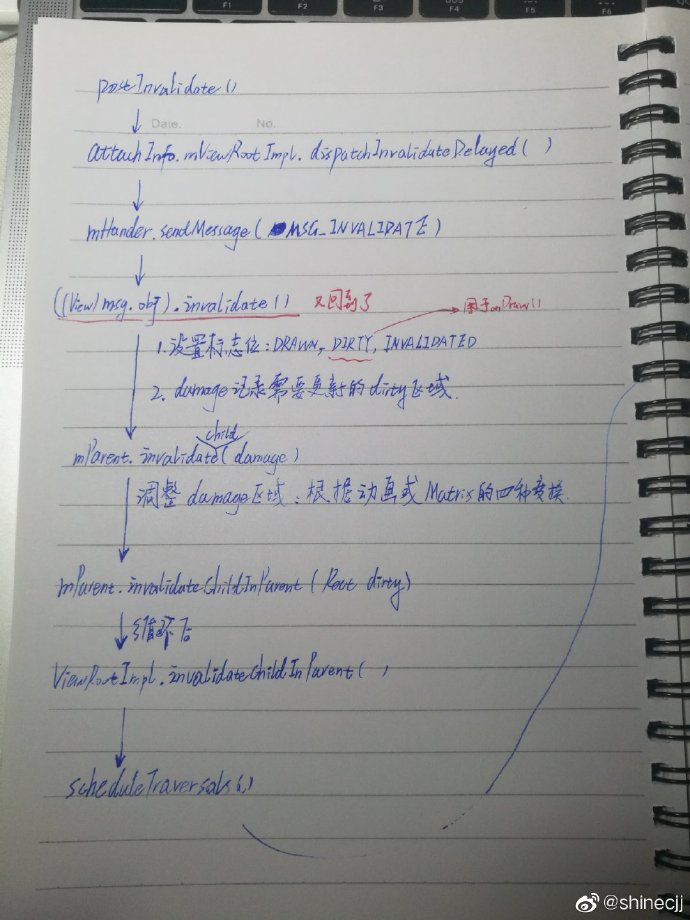 F1 F2 F3 F4 F5 F6
postInvalidate()
Date. No.
attachInfo.mViewRootImpl.dispatchInvalidateDelayed( )
mHander.sendMessage(MSG_INVALIDATE)
((View)msg.obj).invalidate() 又回到了
用于onDraw()
1.设置标志位:DRAWN, DIRTY, INVALIDATED
2. damage记录需要更新的dirty区域.
child
mParent.invalidate(damage)
调整damage区域:根据动画或Matrix的四种变换.
mParent.invalidateChildInParent(Rect dirty)
循环后
ViewRootImpl.invalidateChildInParent( )
scheduleTraversals()
@shinecjj